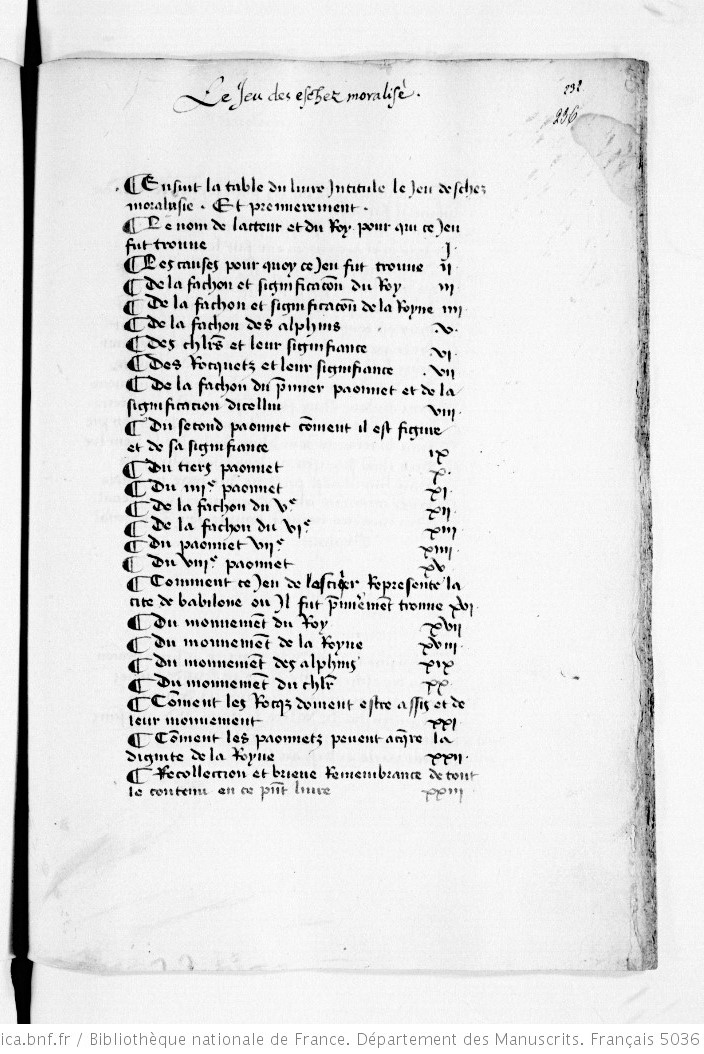 Le Jeu des eschez moralisé.
232
236
¶ Ensuit la table du livre Intitule le Jeu deschez
moralisie . Et premierement .
¶ Le nom de lacteur et du Roy pour qui ce Jeu
fut trouve j
¶ Les causes pour quoy ce Jeu fut trouve ij
¶ De la fachon et significacõn du Roy iij
¶ De la fachon et significacõn de la Royne iiij
¶ De la fachon des alphins v
¶ Des chlr̃s et leur signifiance vi
¶ Des Rocquetz et leur signifiance vii
¶ De la fachon du p̃mier paonnet et de la
signification dicellui viii
¶ Du second paonnet cõment il est figure
et de sa signifiance ix
¶ Du tiers paonnet x
¶ Du iiiiᵉ paonnet xi
¶ De la fachon du vᵉ xii
¶ De la fachon du viᵉ xiii
¶ Du paonnet viiᵉ xiiii
¶ Du viiiᵉ paonnet xv
¶ Comment ce Jeu de lesciq̃er Represente la
cite de babilone ou Il fut p̃mierem̃ent trouve xvi
¶ Du mouvem̃ent du Roy xvii
¶ Du mouvem̃ent de la Royne xviii
¶ Du mouvem̃ent des alphins xix
¶ Du mouvem̃ent du chlr̃ xx
¶ Cõment les Rocqz doivent estre assis et de
leur mouvement xxi
¶ Cõment les paonnetz peuent acq̃re la
dignite de la Royne xxii
¶ Recollection et brieve Remembrance de tout
le contenu en ce pñt livre xxiii
ica.bnf.fr / Bibliothèque nationale de France. Département des Manuscrits. Français 5036